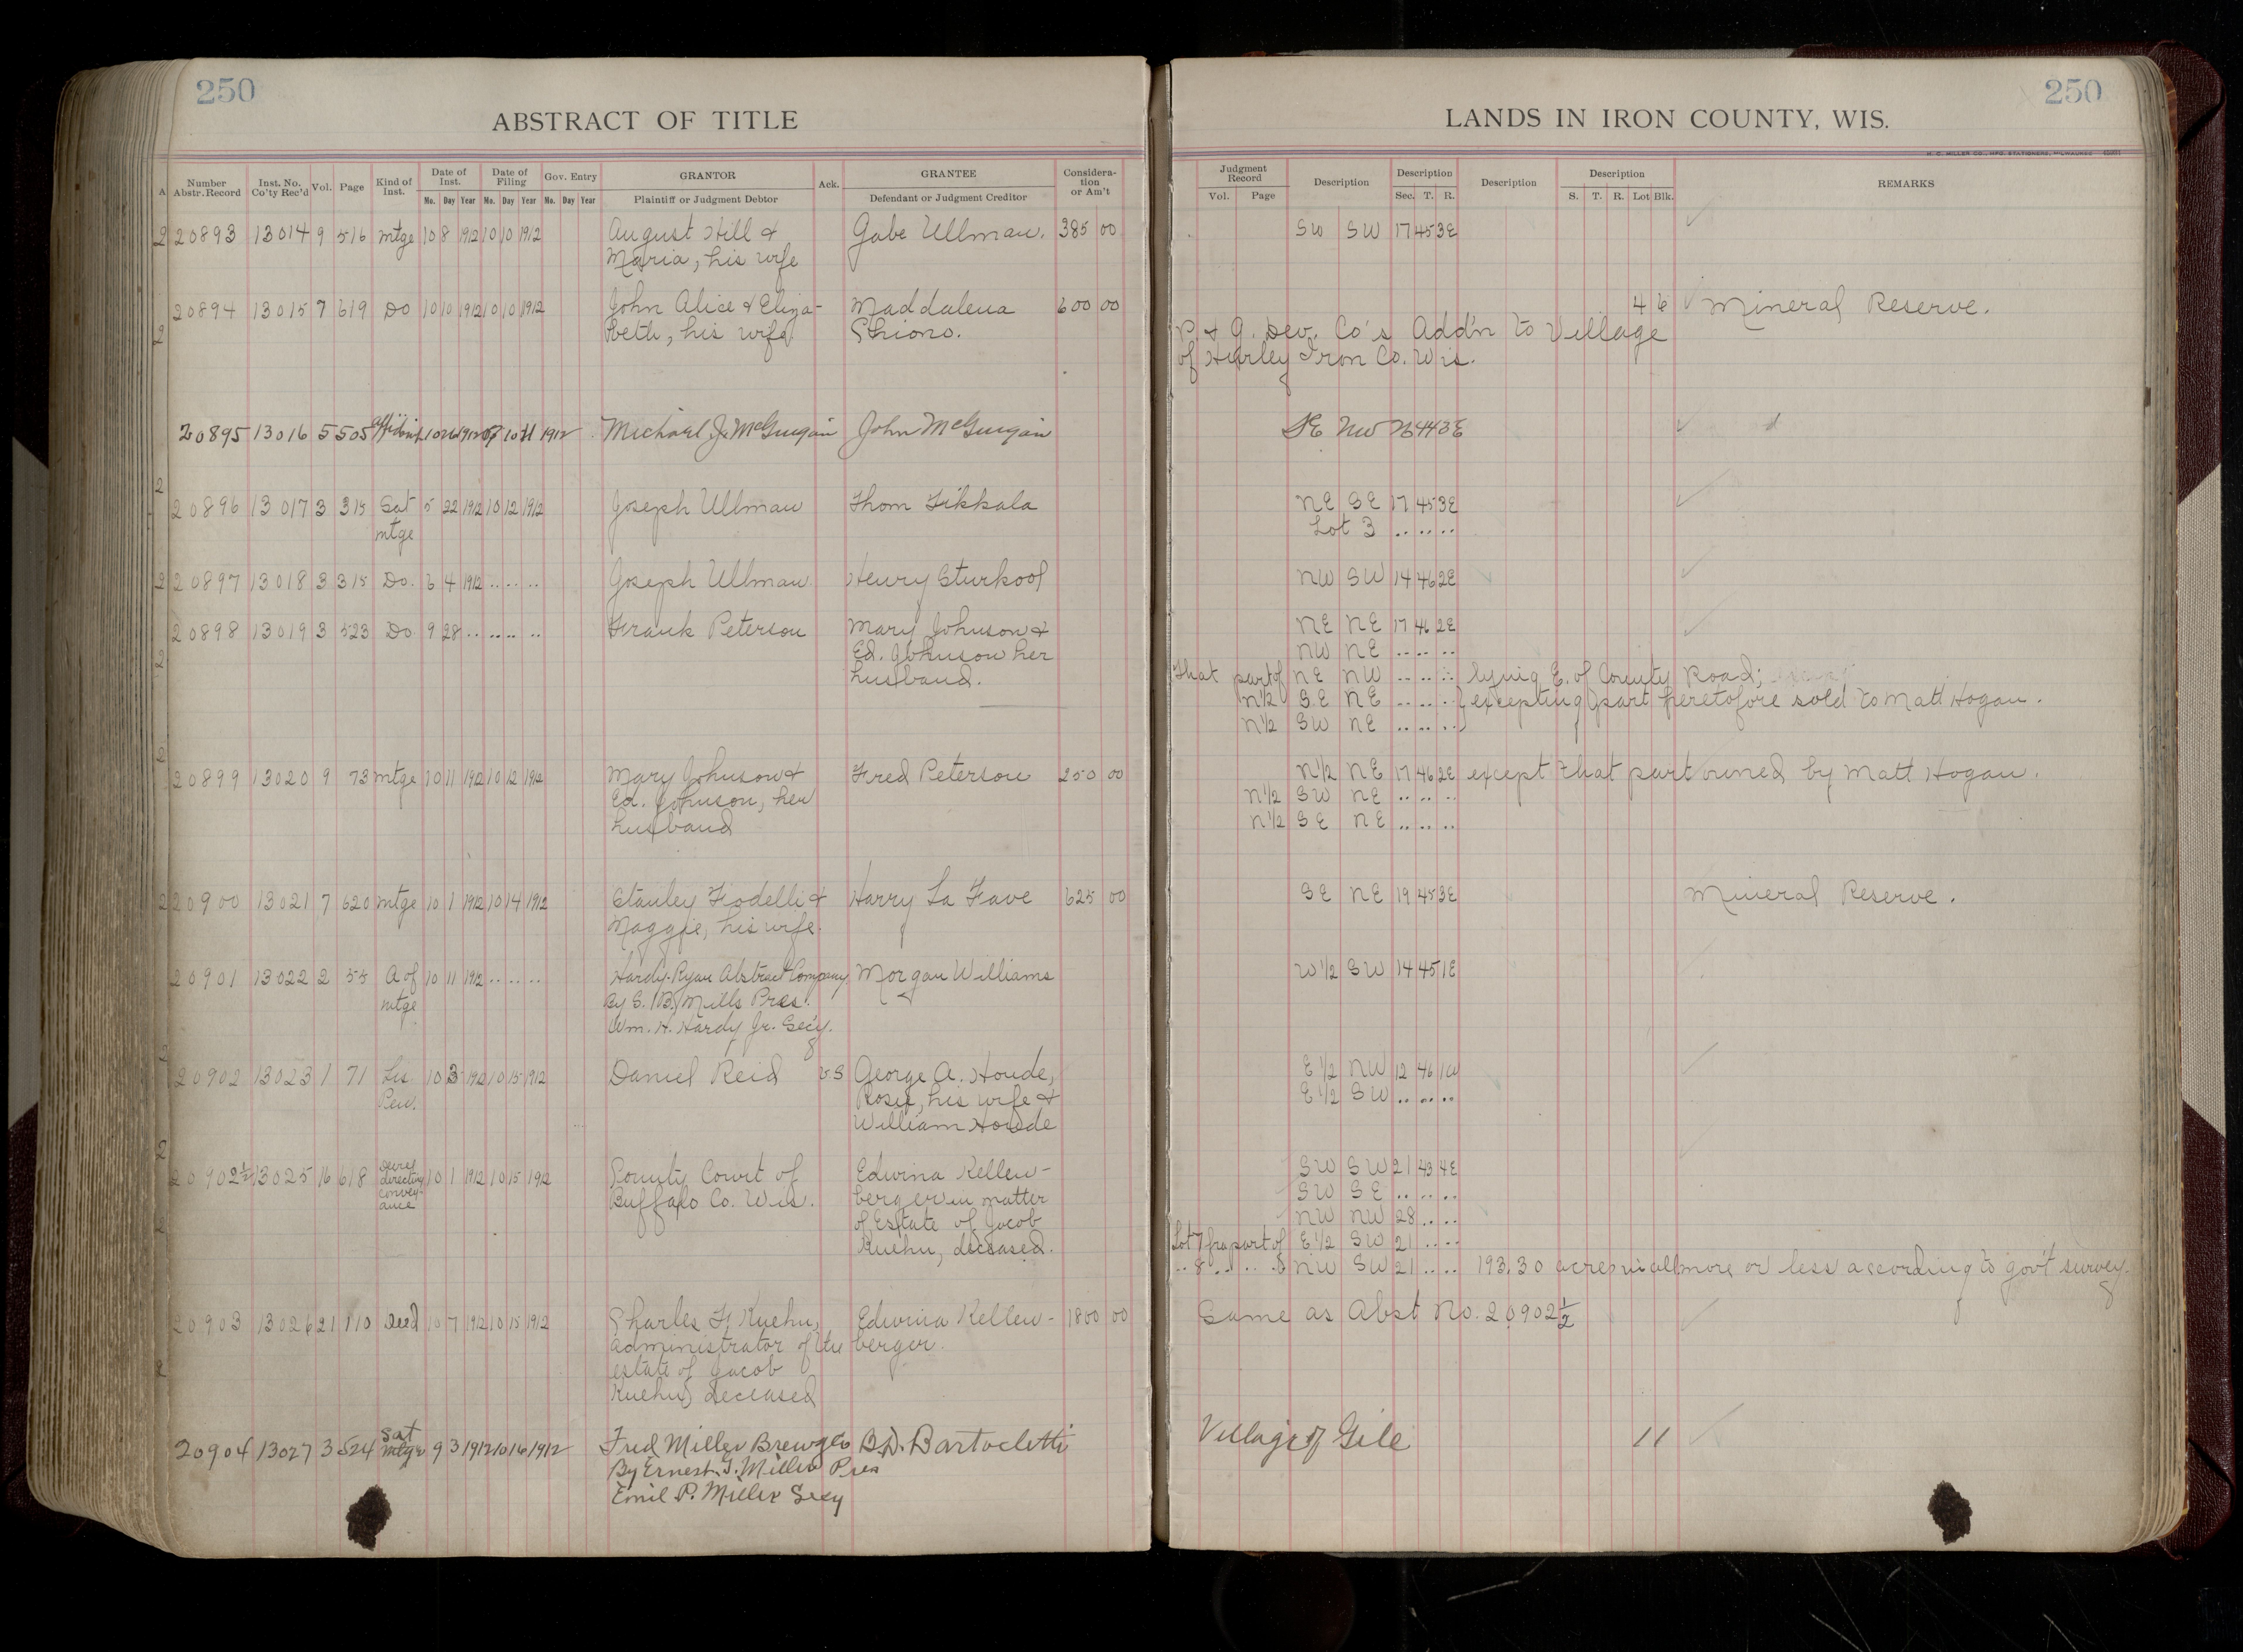 250
ABSTRACT OF TITLE
A Number Abstr. Record Inst. No. Co'ty Rec'd Vol. Page Kind of Inst. Date of Inst. Date of Filing Gov. Entry GRANTOR Ack. GRANTEE Consideration or Am't
Mo. Day Year Mo. Day Year Mo. Day Year Plaintiff or Judgment Debtor Defendant or Judgment Creditor
20893 13014 9 516 Mtge 10 8 1912 10 10 1912 August Hill & Gabe Ullman. 385 00
Maria, his wife
20894 13015 7 619 Do 10 10 1912 10 10 1912 John Alice & Eliza- Maddalena 600 00
beth, his wife. Chiono.
20895 13016 5 505 Affidavit 1912 10 11 1912 Michael J. McGuigan John McGuigan
20896 13017 3 315 Sat 5 22 1912 10 12 1912 Joseph Ullman Thom Fikkala
mtge
20897 13018 3 315 Do. 6 4 1912 .. .. .. Joseph Ullman Henry Sturkool
20898 13019 3 523 Do 9 28 .. .. .. .. Frank Peterson Mary Johnson &
Ed. Johnson her
husband.
20899 13020 9 73 mtge 10 11 1912 10 12 1912 Mary Johnson & Fred Peterson 250 00
Ed. Johnson, her
husband
20900 13021 7 620 mtge 10 1 1912 10 14 1912 Stanley Fiodelli & Harry La Fave 625 00
Maggie, his wife.
20901 13022 2 55 A of 10 11 1912 .. .. .. Hardy-Ryan Abstract Company Morgan Williams
mtge By S. B. Mills Pres.
Wm. H. Hardy Jr. Sec'y.
20902 13023 1 71 Lis. 10 3 1912 10 15 1912 Daniel Reid vs George A. Houde,
Pen. Rosie, his wife &
William Houde
20902½ 13025 16 618 directing 10 1 1912 10 15 1912 County Court of Edwina Kellen-
convey- Buffalo Co. Wis. berger in matter
ance of Estate of Jacob
Kuehn, deceased.
20903 13026 21 110 Deed 10 7 1912 10 15 1912 Charles F. Kuehn, Edwina Kellen- 1800 00
administrator of the berger.
estate of Jacob
Kuehn, deceased
20904 13027 3 524 Sat mtge 9 3 1912 10 16 1912 Fred Miller Brewg Co B.D. Bartocletti
By Ernest G. Miller Pres
Emil P. Miller Secy
250
LANDS IN IRON COUNTY, WIS.
H. C. MILLER CO., MFG. STATIONERS, MILWAUKEE
Judgment Record Description Description Description Description REMARKS
Vol. Page Sec. T. R. S. T. R. Lot Blk.
SW SW 17 45 3E
4 6 Mineral Reserve.
P. & G. Dev. Co's Add'n to Village
of Hurley Iron Co. Wis.
SE NW 26 44 3E
NE SE 17 45 3E
Lot 3 .. .. ..
NW SW 14 46 2E
NE NE 17 46 2E
NW NE .. .. ..
That part of NE NW .. .. .. lying E. of County Road;
N½ SE NE .. .. .. } excepting part heretofore sold to Matt Hogan.
N½ SW NE .. .. ..
N½ NE 17 46 2E except that part owned by Matt Hogan.
N½ SW NE .. .. ..
N½ SE NE .. .. ..
SE NE 19 45 3E Mineral Reserve.
W½ SW 14 45 1E
E½ NW 12 46 1W
E½ SW .. .. ..
SW SW 21 43 4E
SW SE .. .. ..
NW NW 28 .. ..
Lot 7 part of E½ SW 21 .. ..
.. 8 .. .. .. NW SW 21 .. .. 193.30 acres in all more or less according to gov't survey.
Same as Abst No. 20902½
Village of Gile 11